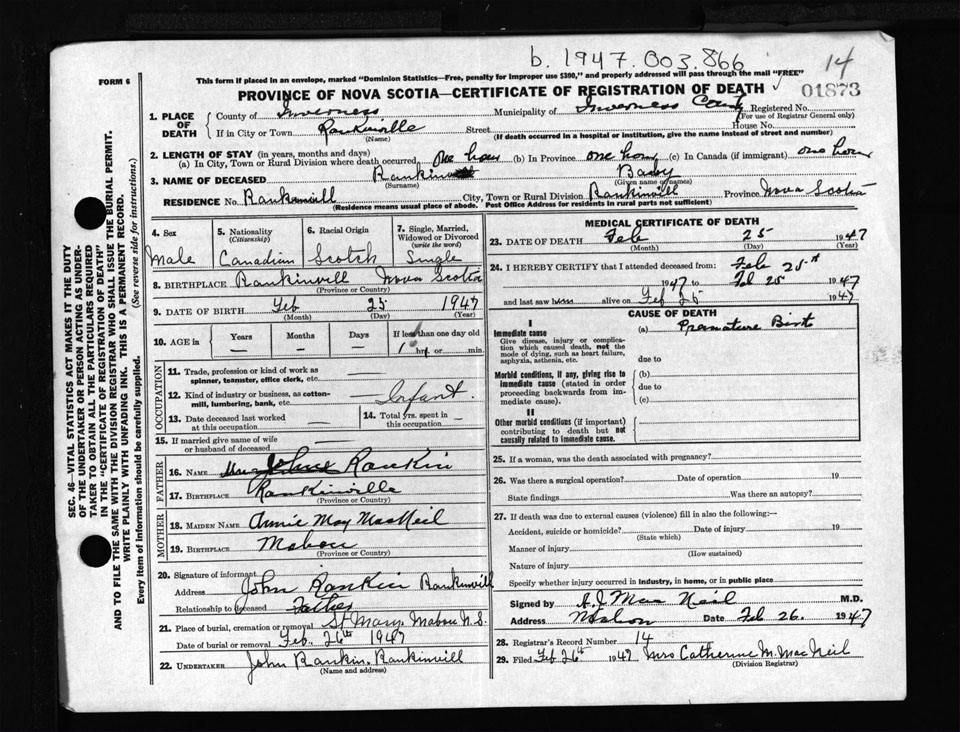 b. 1947.003.866
14
FORM 6
This form if placed in an envelope, marked "Dominion Statistics—Free, penalty for improper use $300," and properly addressed will pass through the mail "FREE"
PROVINCE OF NOVA SCOTIA—CERTIFICATE OF REGISTRATION OF DEATH
01873
1. PLACE OF DEATH
County of Inverness Municipality of Inverness County Registered No.
(For use of Registrar General only)
If in City or Town Rankinville Street House No.
(Name) (If death occurred in a hospital or institution, give the name instead of street and number)
2. LENGTH OF STAY (in years, months and days)
(a) In City, Town or Rural Division where death occurred one hour (b) In Province one hour (c) In Canada (if immigrant) one hour
3. NAME OF DECEASED Rankin Baby
(Surname) (Given name or names)
RESIDENCE No. Rankinvill City, Town or Rural Division Rankinvill Province Nova Scotia
(Residence means usual place of abode. Post Office Address for residents in rural parts not sufficient)
4. Sex
Male
5. Nationality
(Citizenship)
Canadian
6. Racial Origin
Scotch
7. Single, Married, Widowed or Divorced
(write the word)
Single
8. BIRTHPLACE Rankinvill Nova Scotia
(Province or Country)
9. DATE OF BIRTH Feb 25 1947
(Month) (Day) (Year)
10. AGE in Years Months Days If less than one day old
— — — 1 hr. or min.
OCCUPATION
11. Trade, profession or kind of work as spinner, teamster, office clerk, etc. —
12. Kind of industry or business, as cotton-mill, lumbering, bank, etc. Infant.
13. Date deceased last worked at this occupation —
14. Total yrs. spent in this occupation —
15. If married give name of wife or husband of deceased —
FATHER
16. NAME John Rankin
17. BIRTHPLACE Rankinville
(Province or Country)
MOTHER
18. MAIDEN NAME Annie May MacNeil
19. BIRTHPLACE Mabou
(Province or Country)
20. Signature of informant John Rankin Rankinvill
Address
Relationship to deceased Father
21. Place of burial, cremation or removal St Mary Mabou N.S.
Date of burial or removal Feb. 26th 1947
22. UNDERTAKER John Rankin. Rankinvill
(Name and address)
MEDICAL CERTIFICATE OF DEATH
23. DATE OF DEATH Feb 25 1947
(Month) (Day) (Year)
24. I HEREBY CERTIFY that I attended deceased from: Feb 25th
1947 to Feb 25 1947
and last saw him alive on Feb 25 1947
CAUSE OF DEATH
I
Immediate cause (a) Premature Birth
Give disease, injury or complication which caused death, not the mode of dying, such as heart failure, asphyxia, asthenia, etc.
due to
Morbid conditions, if any, giving rise to immediate cause (stated in order proceeding backwards from immediate cause).
(b)
due to
(c)
II
Other morbid conditions (if important) contributing to death but not causally related to immediate cause.
25. If a woman, was the death associated with pregnancy?
26. Was there a surgical operation? Date of operation 19
State findings Was there an autopsy?
27. If death was due to external causes (violence) fill in also the following:—
Accident, suicide or homicide? Date of injury 19
(State which)
Manner of injury
(How sustained)
Nature of injury
Specify whether injury occurred in industry, in home, or in public place
Signed by A.J. MacNeil M.D.
Address Mabou Date Feb 26. 1947
28. Registrar's Record Number 14
29. Filed Feb 26th 1947 Mrs Catherine M. MacNeil
(Division Registrar)
SEC. 46—VITAL STATISTICS ACT MAKES IT THE DUTY
OF THE UNDERTAKER OR PERSON ACTING AS UNDERTAKER TO OBTAIN ALL THE PARTICULARS REQUIRED
IN THE "CERTIFICATE OF REGISTRATION OF DEATH"
AND TO FILE THE SAME WITH THE DIVISION REGISTRAR WHO SHALL ISSUE THE BURIAL PERMIT.
WRITE PLAINLY WITH UNFADING INK. THIS IS A PERMANENT RECORD.
Every item of information should be carefully supplied. (See reverse side for instructions.)